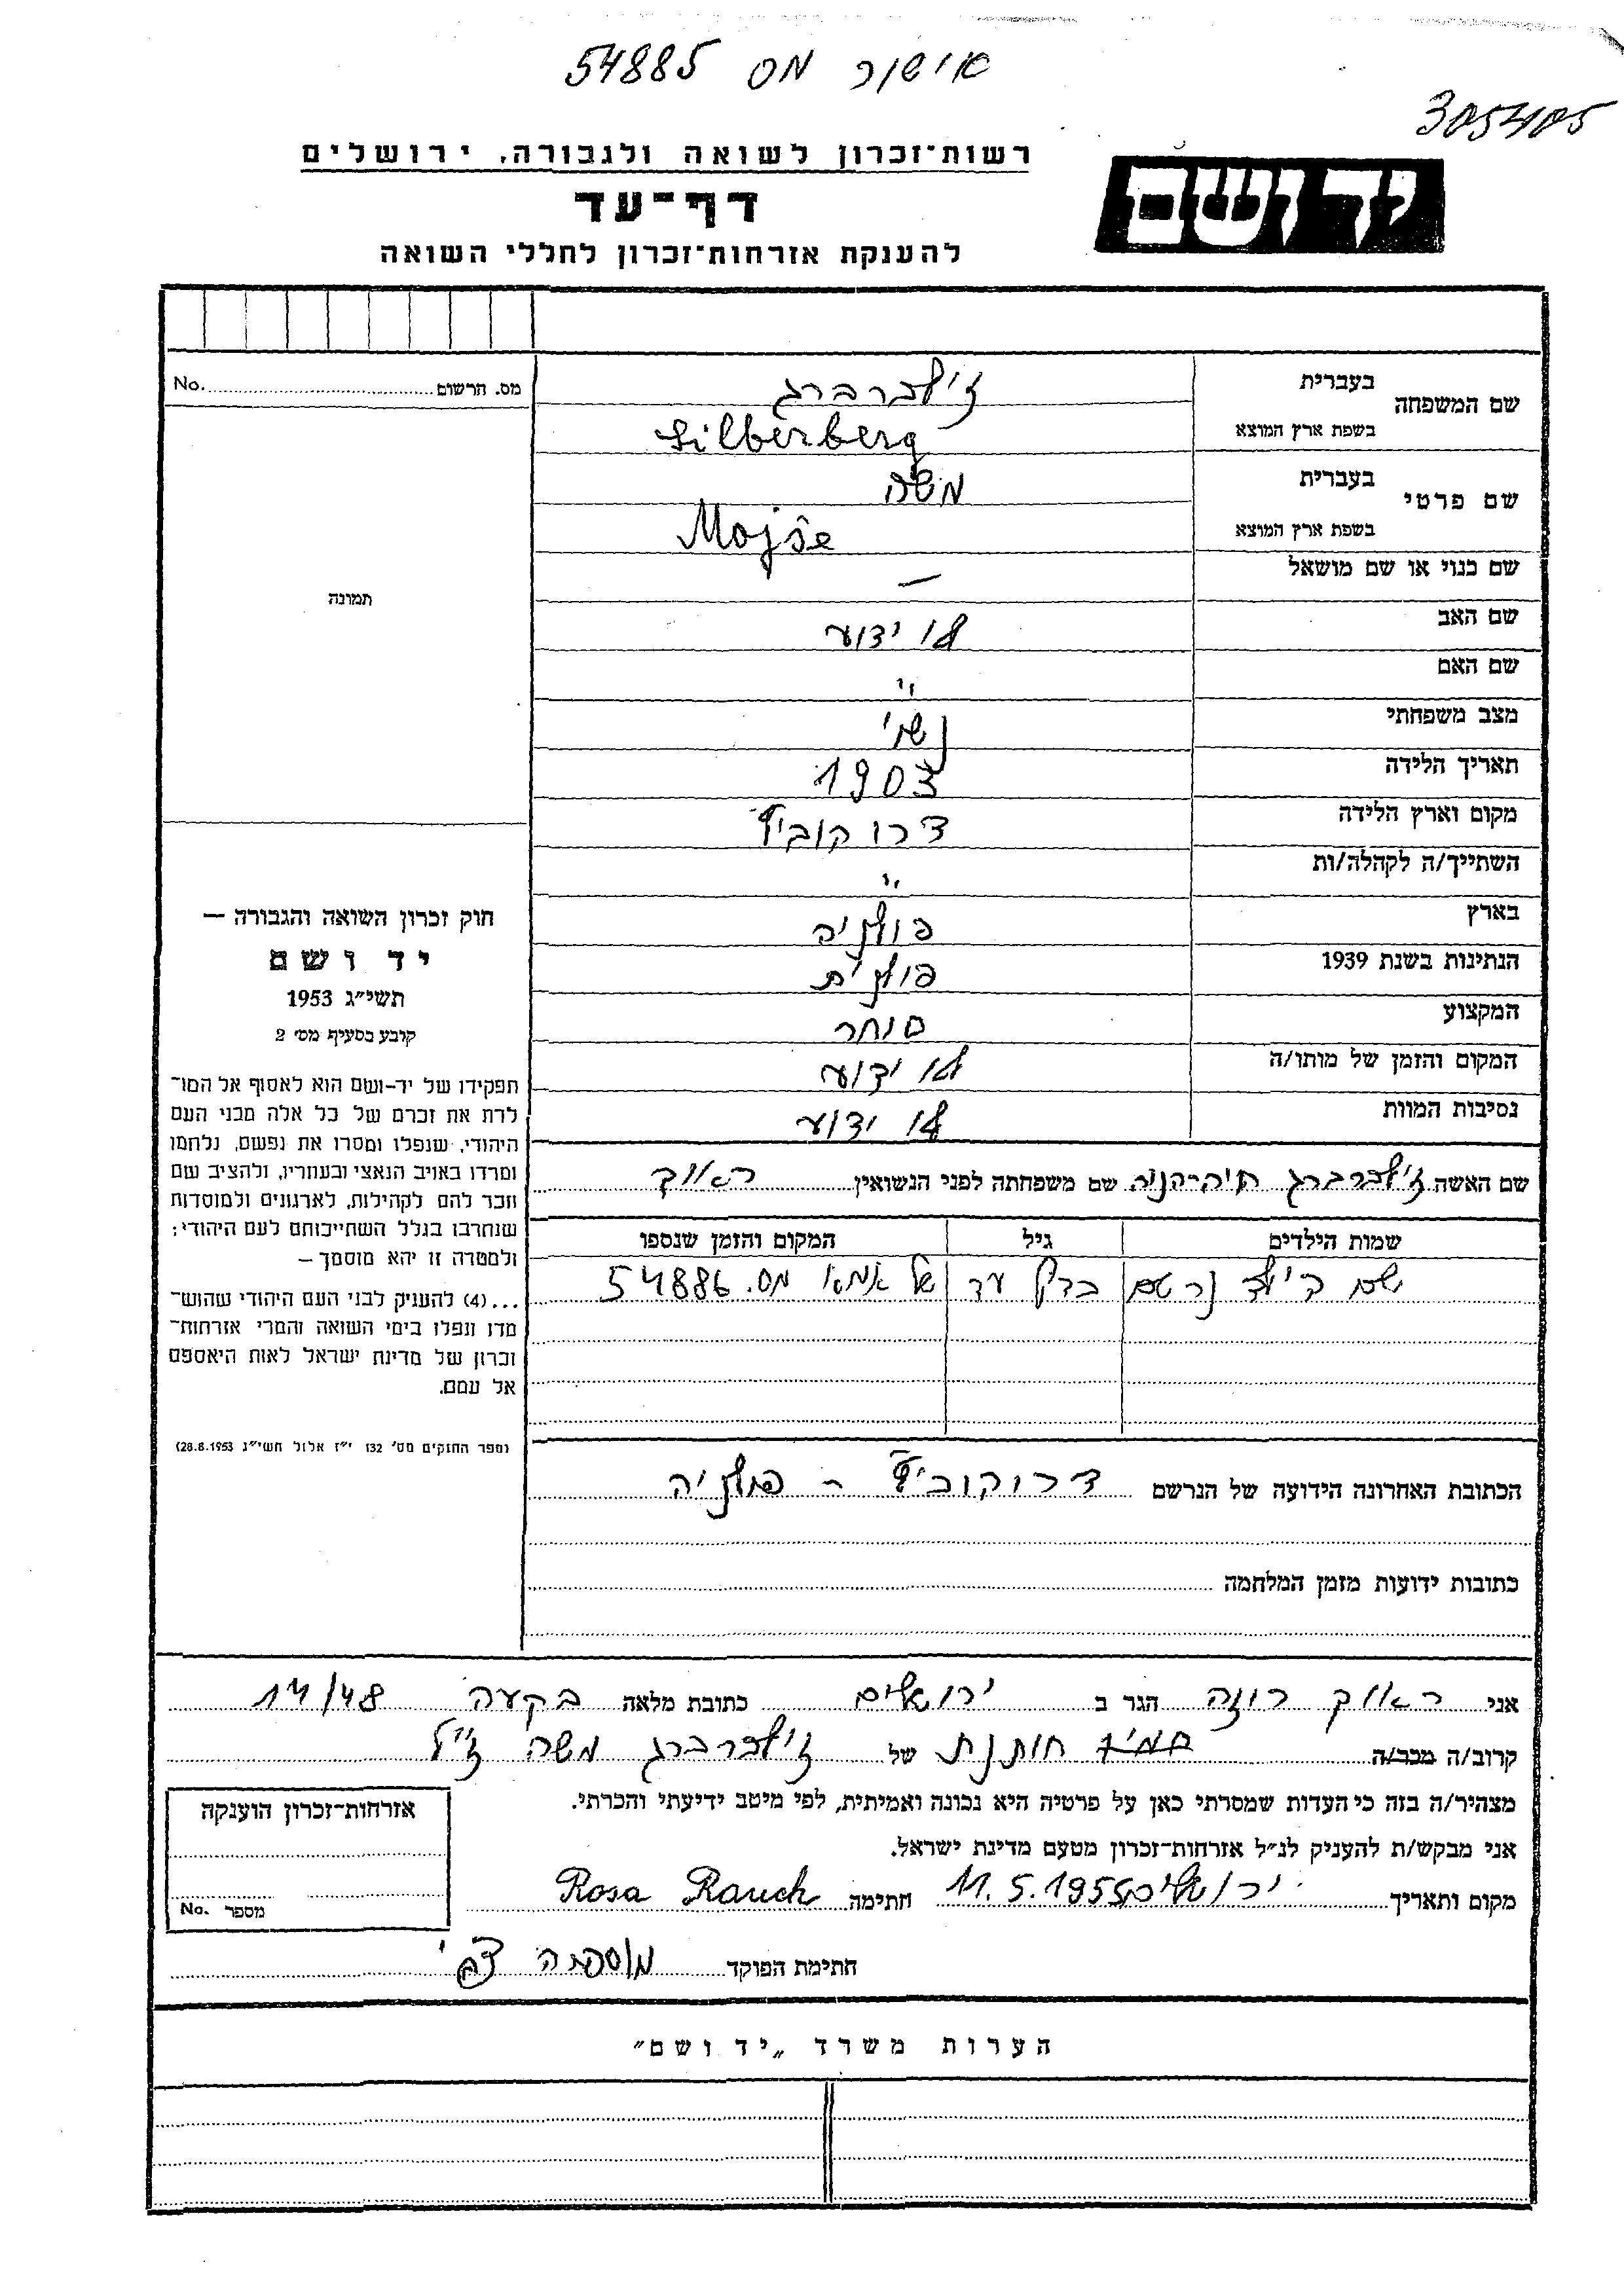 אישור מס 54885
3054105
יד ושם
רשות־זכרון לשואה ולגבורה, ירושלים
דף־עד
להענקת אזרחות־זכרון לחללי השואה
שם המשפחה
בעברית זילברברג
בשפת ארץ המוצא Silberberg
שם פרטי
בעברית משה
בשפת ארץ המוצא Mojše
שם כנוי או שם מושאל —
שם האב לא ידוע
שם האם "
מצב משפחתי נשוי
תאריך הלידה 1903
מקום וארץ הלידה דרוקוביץ
השתייך/ה לקהלה/ות "
בארץ פולניה
הנתינות בשנת 1939 פולנית
המקצוע סוחר
המקום והזמן של מותו/ה לא ידוע
נסיבות המוות לא ידוע
מס. הרשום No.
תמונה
חוק זכרון השואה והגבורה —
יד ושם
תשי״ג 1953
קובע בסעיף מס׳ 2
תפקידו של יד-ושם הוא לאסוף אל המו־
לדת את זכרם של כל אלה מבני העם
היהודי, שנפלו ומסרו את נפשם, נלחמו
ומרדו באויב הנאצי ובעוזריו, ולהציב שם
וזכר להם לקהילות, לארגונים ולמוסדות
שנחרבו בגלל השתייכותם לעם היהודי;
ולמטרה זו יהא מוסמך —
...(4) להעניק לבני העם היהודי שהוש־
מדו ונפלו בימי השואה והמרי אזרחות־
זכרון של מדינת ישראל לאות היאספם
אל עמם.
(ספר החוקים מס׳ 132 י״ז אלול תשי״ג 28.8.1953)
שם האשה זילברברג חיה-הניה שם משפחתה לפני הנשואין ראוך
שמות הילדים גיל המקום והזמן שנספו
שם הילד נרשם בדף עד של אמא מס. 54886
הכתובת האחרונה הידועה של הנרשם דרוקוביץ - פולניה
כתובות ידועות מזמן המלחמה
אני ראוך רוזה הגר ב ירושלים כתובת מלאה בקעה 14/48
קרוב/ה מכר/ה חותנת של זילברברג משה ז״ל
מצהיר/ה בזה כי העדות שמסרתי כאן על פרטיה היא נכונה ואמיתית, לפי מיטב ידיעתי והכרתי.
אני מבקש/ת להעניק לנ״ל אזרחות־זכרון מטעם מדינת ישראל.
מקום ותאריך ירושלים 11.5.1955 חתימה Rosa Rauch
חתימת הפוקד
אזרחות־זכרון הוענקה
מספר No.
הערות משרד „יד ושם״